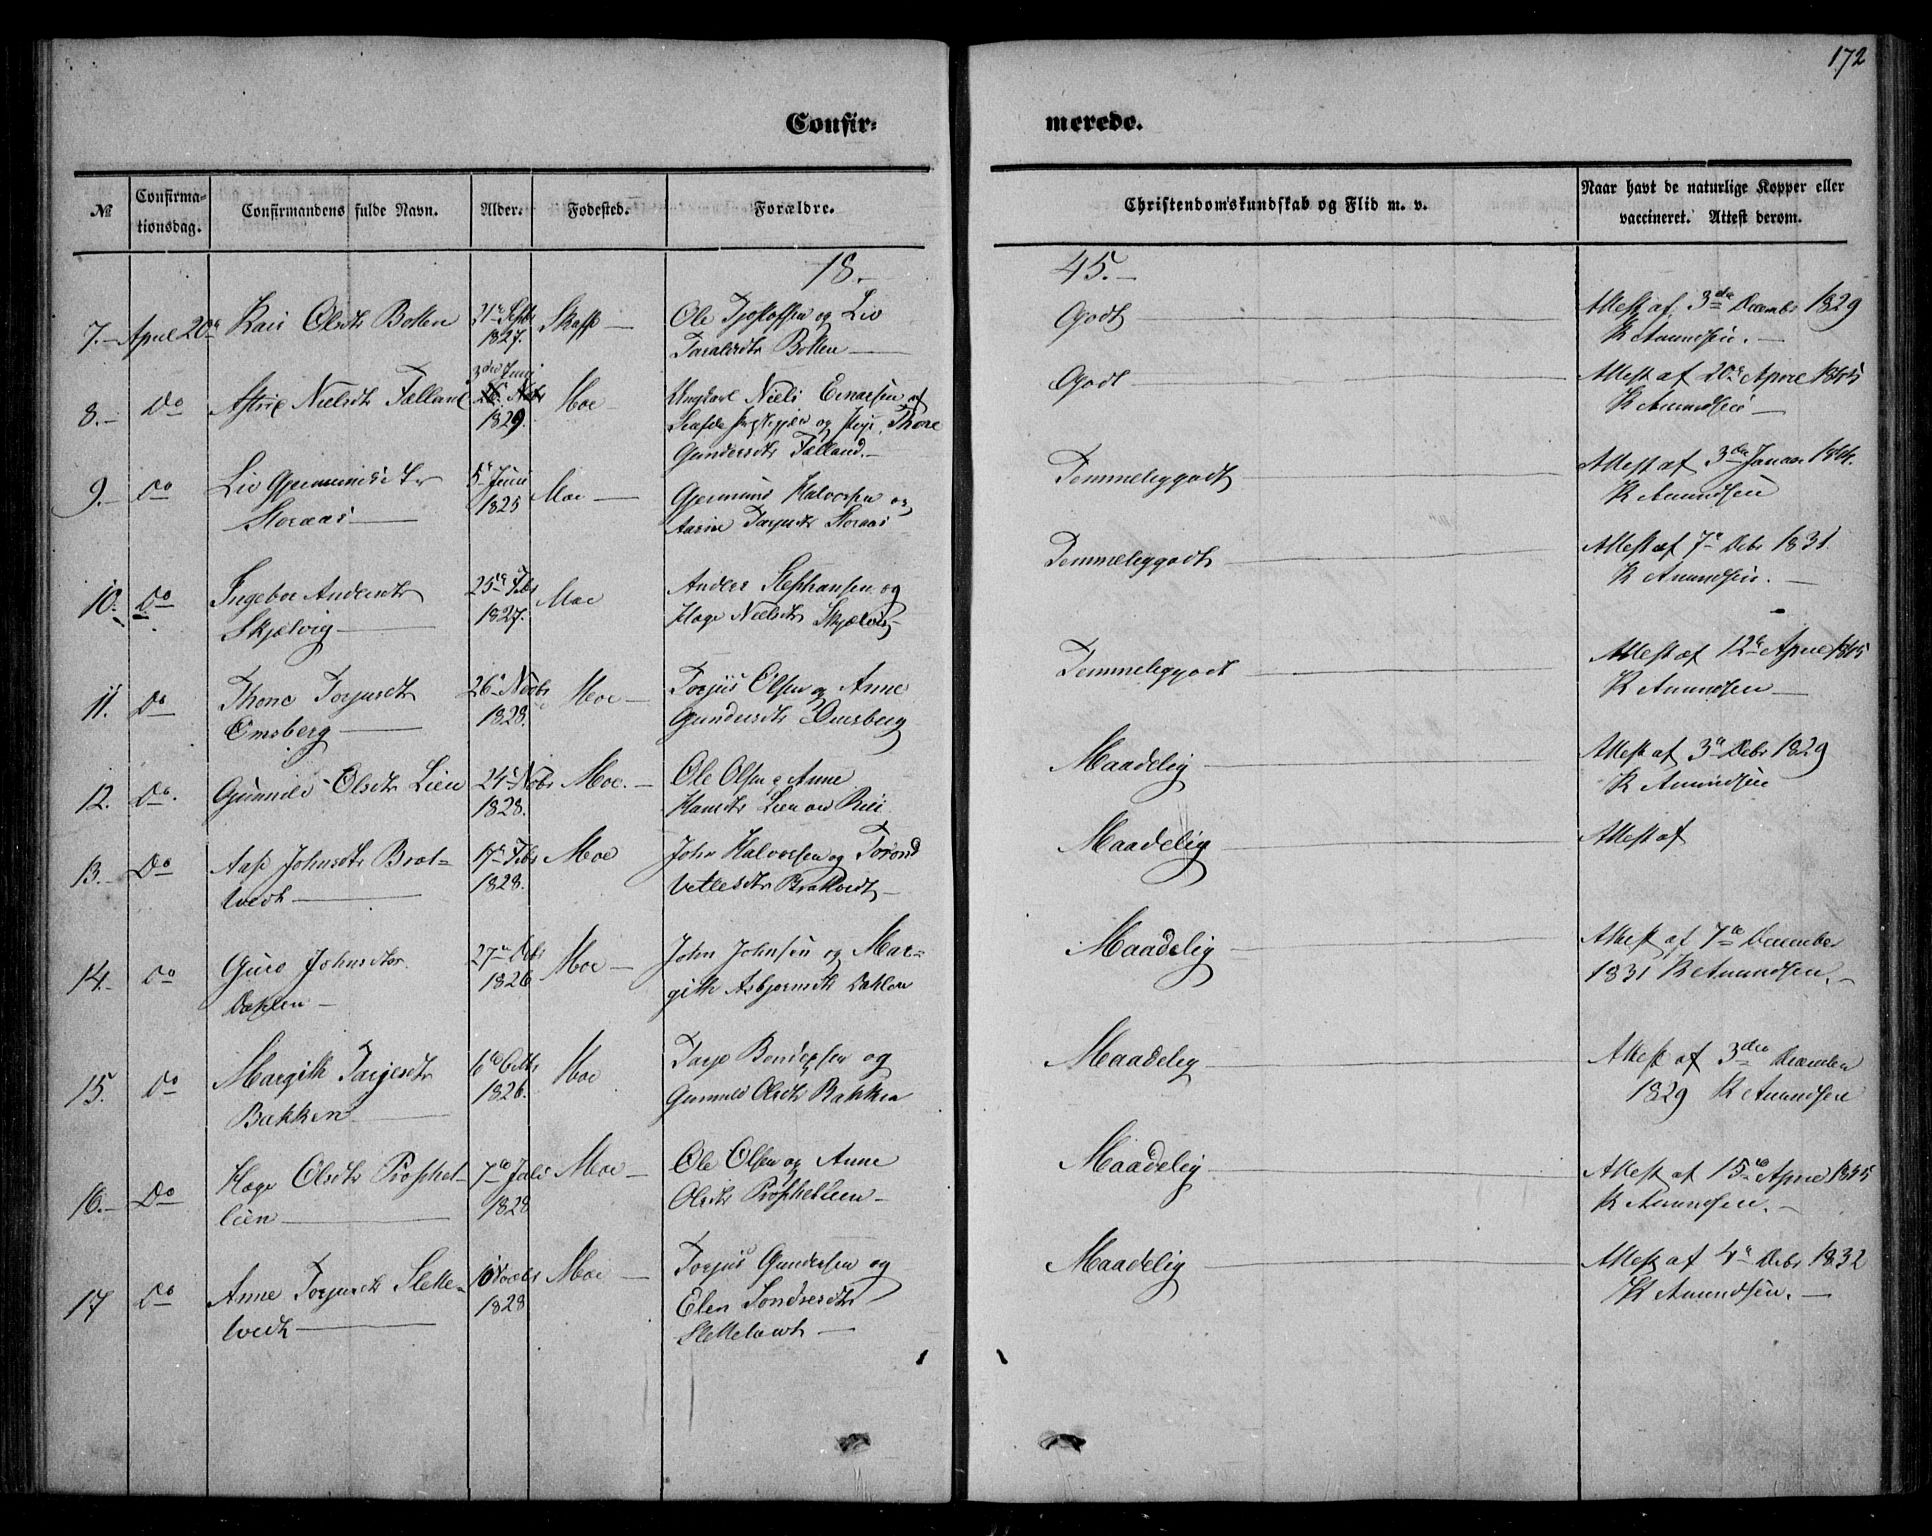 172
Confir=
merede.
№
Confirma-
tionsdag.
Confirmandens fulde Navn.
Alder.
Fødested.
Forældre.
Christendomskundskab og Flid m. v.
Naar havt de naturlige Kopper eller
vaccineret. Attest derom.
18.-
45.-
7.- April 20de
Kari Olsdtr Botten
21de Septbr
1827.
Skafse
Ole
og Liv
Taraldsdtr Botten
Godt
Attest af 3die Decembr 1829
K Amundsen.
8.- Do
Astrid Nielsdtr Fælland
3die Juni
1829.
Moe
Ungkarl Niels Einarsen af
og Pige Thone
Gundersdtr Fælland.-
Godt
Attest af 20de April 1845
K Amundsen
9.- Do
Liv Gjermundsdtr
Storaas
5te Juni
1825
Moe
Gjermund Halvorsen og
Aasine Torjusdtr Storaas
Temmeliggodt
Attest af 3die Januar
K Amundsen
10. Do
Ingebor Andersdtr
Skjelvig
25de Febr
1827.
Moe
Anders Stephansen og
Hæge Nielsdtr Skjelvig
Temmeliggodt
Attest af 7de Decbr 1831.
K Amundsen.
11. Do
Thone Torjusdtr
Omsberg
26de Novbr
1828.
Moe
Torjus Olsen og Anne
Gundersdtr Omsberg
Temmeliggodt
Attest af 12te April 1845
K Amundsen
12. Do.
Gunnild Olsdtr Lien
24de Novbr
1828.
Moe.
Ole Olsen og Anne
Hansdtr Lien
Maadelig
Attest af 3die Decbr 1829
K Amundsen
13. Do
Aase Johnsdtr Brat-
tvedt
17de Febr
1828.
Moe
John Halvorsen og Torond
Vetlesdtr Brattvedt
Maadelig
Attest af
14. Do
Guro Johnsdtr
Dahlen
27de Decbr
1826
Moe
John Johnsen og Mar-
gith Asbjørnsdtr Dahlen
Maadelig
Attest af 7de December
1831 K Amundsen.
15. Do
Margith Tarjesdtr
Bakken
6te Octbr
1826.
Moe
Tarje Bendixsen og
Gunnild Olsdtr Bakken
Maadelig
Attest af 3die December
1829 K Amundsen
16. Do
Hæge Olsdtr Prophet-
lien
7de Juli
1828
Moe
Ole Olsen og Anne
Olsdtr Prophetlien
Maadelig
Attest af 15de April 1845
K Amundsen.
17 Do
Anne Torjusdtr Slette-
tvedt
Novbr
1828
Moe
Torjus Gundersen og
Elen Sondresdtr
Slettetvedt
Maadelig
Attest af 4de Decbr 1832
K Amundsen.